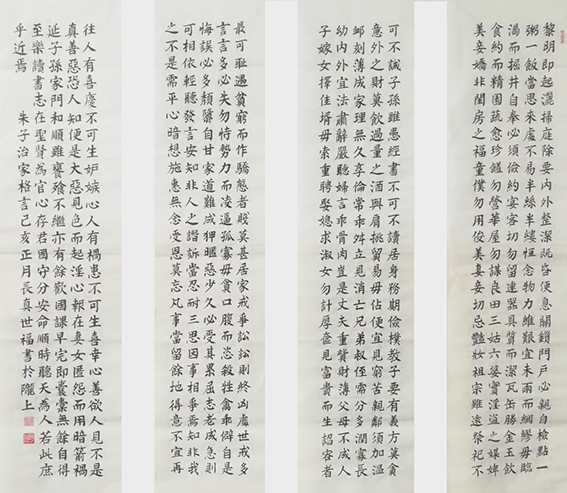 黎明即起灑掃庭除要內外整潔既昏便息關鎖門戶必親自檢點一
粥一飯當思來處不易半絲半縷恒念物力維艱宜未雨而綢繆毋臨
渴而掘井自奉必須儉約宴客切勿留連器具質而潔瓦缶勝金玉飲
食約而精園蔬愈珍饈勿營華屋勿謀良田三姑六婆實淫盜之媒婢
美妾嬌非閨房之福童僕勿用俊美妻妾切忌豔妝祖宗雖遠祭祀不
可不誠子孫雖愚經書不可不讀居身務期儉樸教子要有義方莫貪
意外之財莫飲過量之酒與肩挑貿易毋佔便宜見窮苦親鄰須加溫
卹刻薄成家理無久享倫常乖舛立見消亡兄弟叔侄需分多潤寡長
幼內外宜法肅辭嚴聽婦言乖骨肉豈是丈夫重貲財薄父母不成人
子嫁女擇佳婿毋索重聘娶媳求淑女勿計厚奩見富貴而生諂容者
最可恥遇貧窮而作驕態者賤莫甚居家戒爭訟訟則終凶處世戒多
言言多必失勿恃勢力而凌逼孤寡毋貪口腹而恣殺牲禽乖僻自是
悔誤必多頹惰自甘家道難成狎暱惡少久必受其累屈志老成急則
可相依輕聽發言安知非人之譖訴當忍耐三思因事相爭焉知非我
之不是需平心暗想施惠無念受恩莫忘凡事當留餘地得意不宜再
往人有喜慶不可生妒嫉心人有禍患不可生喜幸心善欲人見不是
真善惡恐人知便是大惡見色而起淫心報在妻女匿怨而用暗箭禍
延子孫家門和順雖饔飧不繼亦有餘歡國課早完即囊橐無餘自得
至樂讀書志在聖賢為官心存君國守分安命順時聽天為人若此庶
乎近焉 朱子治家格言己亥正月長真世福書於隴上